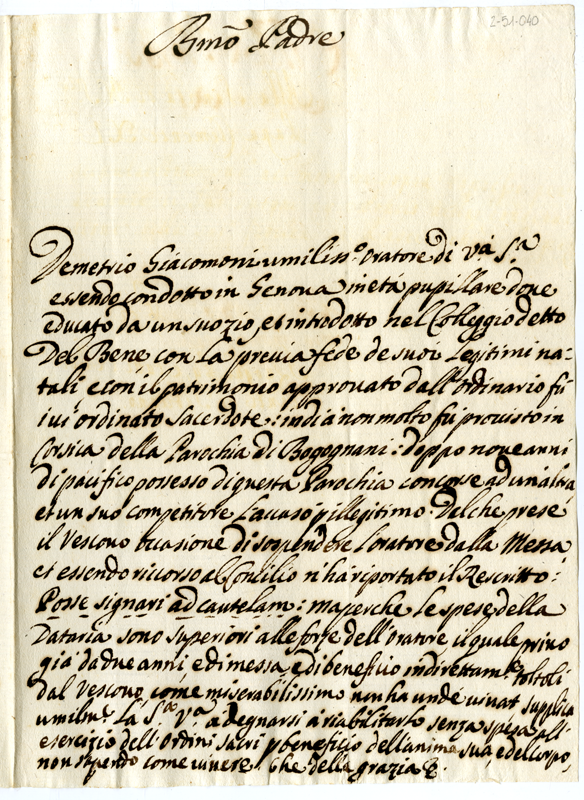 2-51-040
Bmõ Padre
Demetrio Giacomoni umiliss.º Oratore di V.ª S.ª
essendo condotto in Genova in età pupillare doue
educato da un suo zio, et introdotto nel Colleggio detto
Del Bene con la previa fede de suoi legitimi na-
tali e con il patrimonio approuato dall'ordinario fù
iui ordinato sacerdote: indi à non molto fù prouisto in
Corsica della Parochia di Bogognani: doppo noue anni
di pacifico possesso di questa Parochia concorse ad un'altra
et un suo competitore l'accusò p illegitimo. Dal che prese
il Vescouo occasione di sospendere l'oratore dalla Messa
et essendo ricorso al Concilio n'hà riportato il Rescritto:
Posse signari ad cautelam: ma perche le spese della
Dataria sono superiori alle forze dell'oratore il quale priuo
già da due anni e di messa e di beneficio indirettam.te toltoli
dal Vescouo, come miserabilissimo non ha unde viuat supplica
umilm.e la S.ª V.ª a degnarsi à riabilitarlo senza spesa all'
esercizio dell'Ordini sacri p beneficio dell'anima sua e del corpo,
non sapendo come viuere. Che della grazia &.